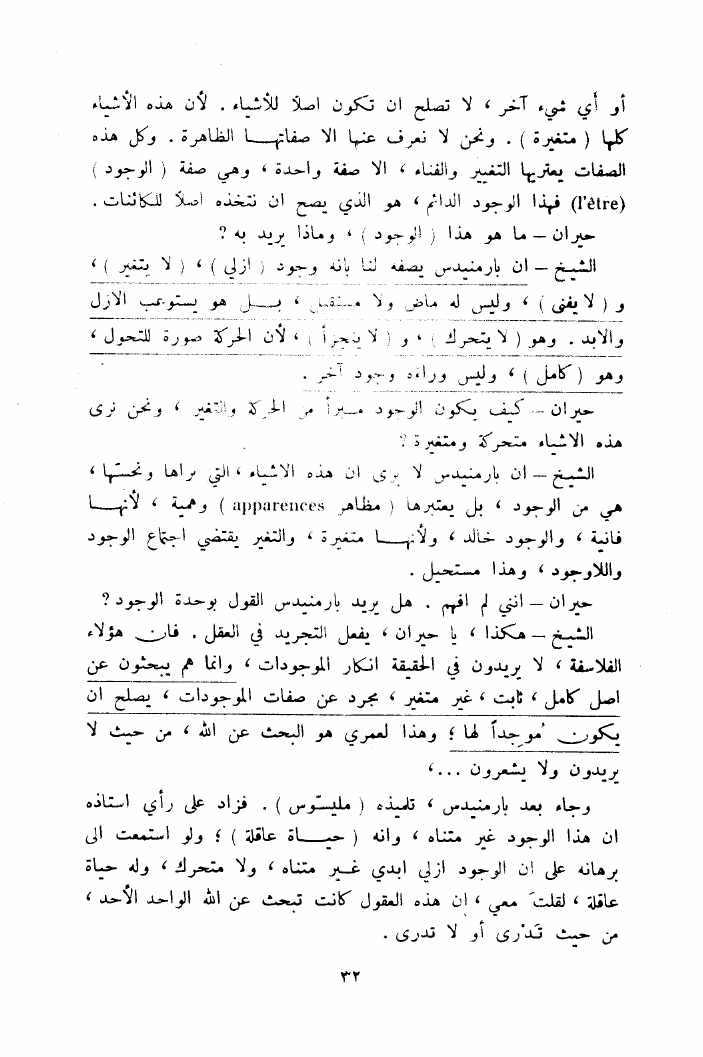 أو أي شيء آخر ، لا تصلح ان تكون اصلاً للأشياء . لأن هذه الأشياء
كلها ( متغيرة ) . ونحن لا نعرف عنها الا صفاتهـا الظاهرة . وكل هذه
الصفات يعتريها التغيير والفناء ، الا صفة واحدة ، وهي صفة ( الوجود )
(l'être) فهذا الوجود الدائم ، هو الذي يصح ان نتخذه اصلاً للكائنات .
حيران – ما هو هذا ( الوجود ) ، وماذا يريد به ?
الشيخ – ان بارمنيدس يصفه لنا بانه وجود ( ازلي ) ، ( لا يتغير ) ،
و ( لا يفنى ) ، وليس له ماض ولا مستقبل ، بــل هو يستوعب الازل
والابد . وهو ( لا يتحرك ) ، و ( لا يتجزأ ) ، لأن الحركة صورة للتحول ،
وهو ( كامل ) ، وليس وراءه وجود آخر .
حيران – كيف يكون الوجود مـبرأ من الحركة والتغير ، ونحن نرى
هذه الاشياء متحركة ومتغيرة ?
الشيخ – ان بارمنيدس لا يرى ان هذه الاشياء ، التي نراها ونحسّها ،
هي من الوجود ، بل يعتبرها ( مظاهر apparences ) وهمية ، لأنهــا
فانية ، والوجود خالد ، ولأنهــا متغيرة ، والتغير يقتضي اجتماع الوجود
واللاوجود ، وهذا مستحيل .
حيران – انني لم افهم . هل يريد بارمنيدس القول بوحدة الوجود ?
الشيخ – هكذا ، يا حيران ، يفعل التجريد في العقل . فان هؤلاء
الفلاسفة ، لا يريدون في الحقيقة انكار الموجودات ، وانما هم يبحثون عن
اصل كامل ، ثابت ، غير متغير ، مجرد عن صفات الموجودات ، يصلح ان
يكون مُوجِداً لها ؛ وهذا لعمري هو البحث عن الله ، من حيث لا
يريدون ولا يشعرون ...،
وجاء بعد بارمنيدس ، تلميذه ( مليسّوس ) . فزاد على رأي استاذه
ان هذا الوجود غير متناه ، وانه ( حيــاة عاقلة ) ؛ ولو استمعت الى
برهانه على ان الوجود ازلي ابدي غـير متناه ، ولا متحرك ، وله حياة
عاقلة ، لقلتَ معي ، ان هذه العقول كانت تبحث عن الله الواحد الأحد ،
من حيث تَدْرى أو لا تدرى .
٣٢